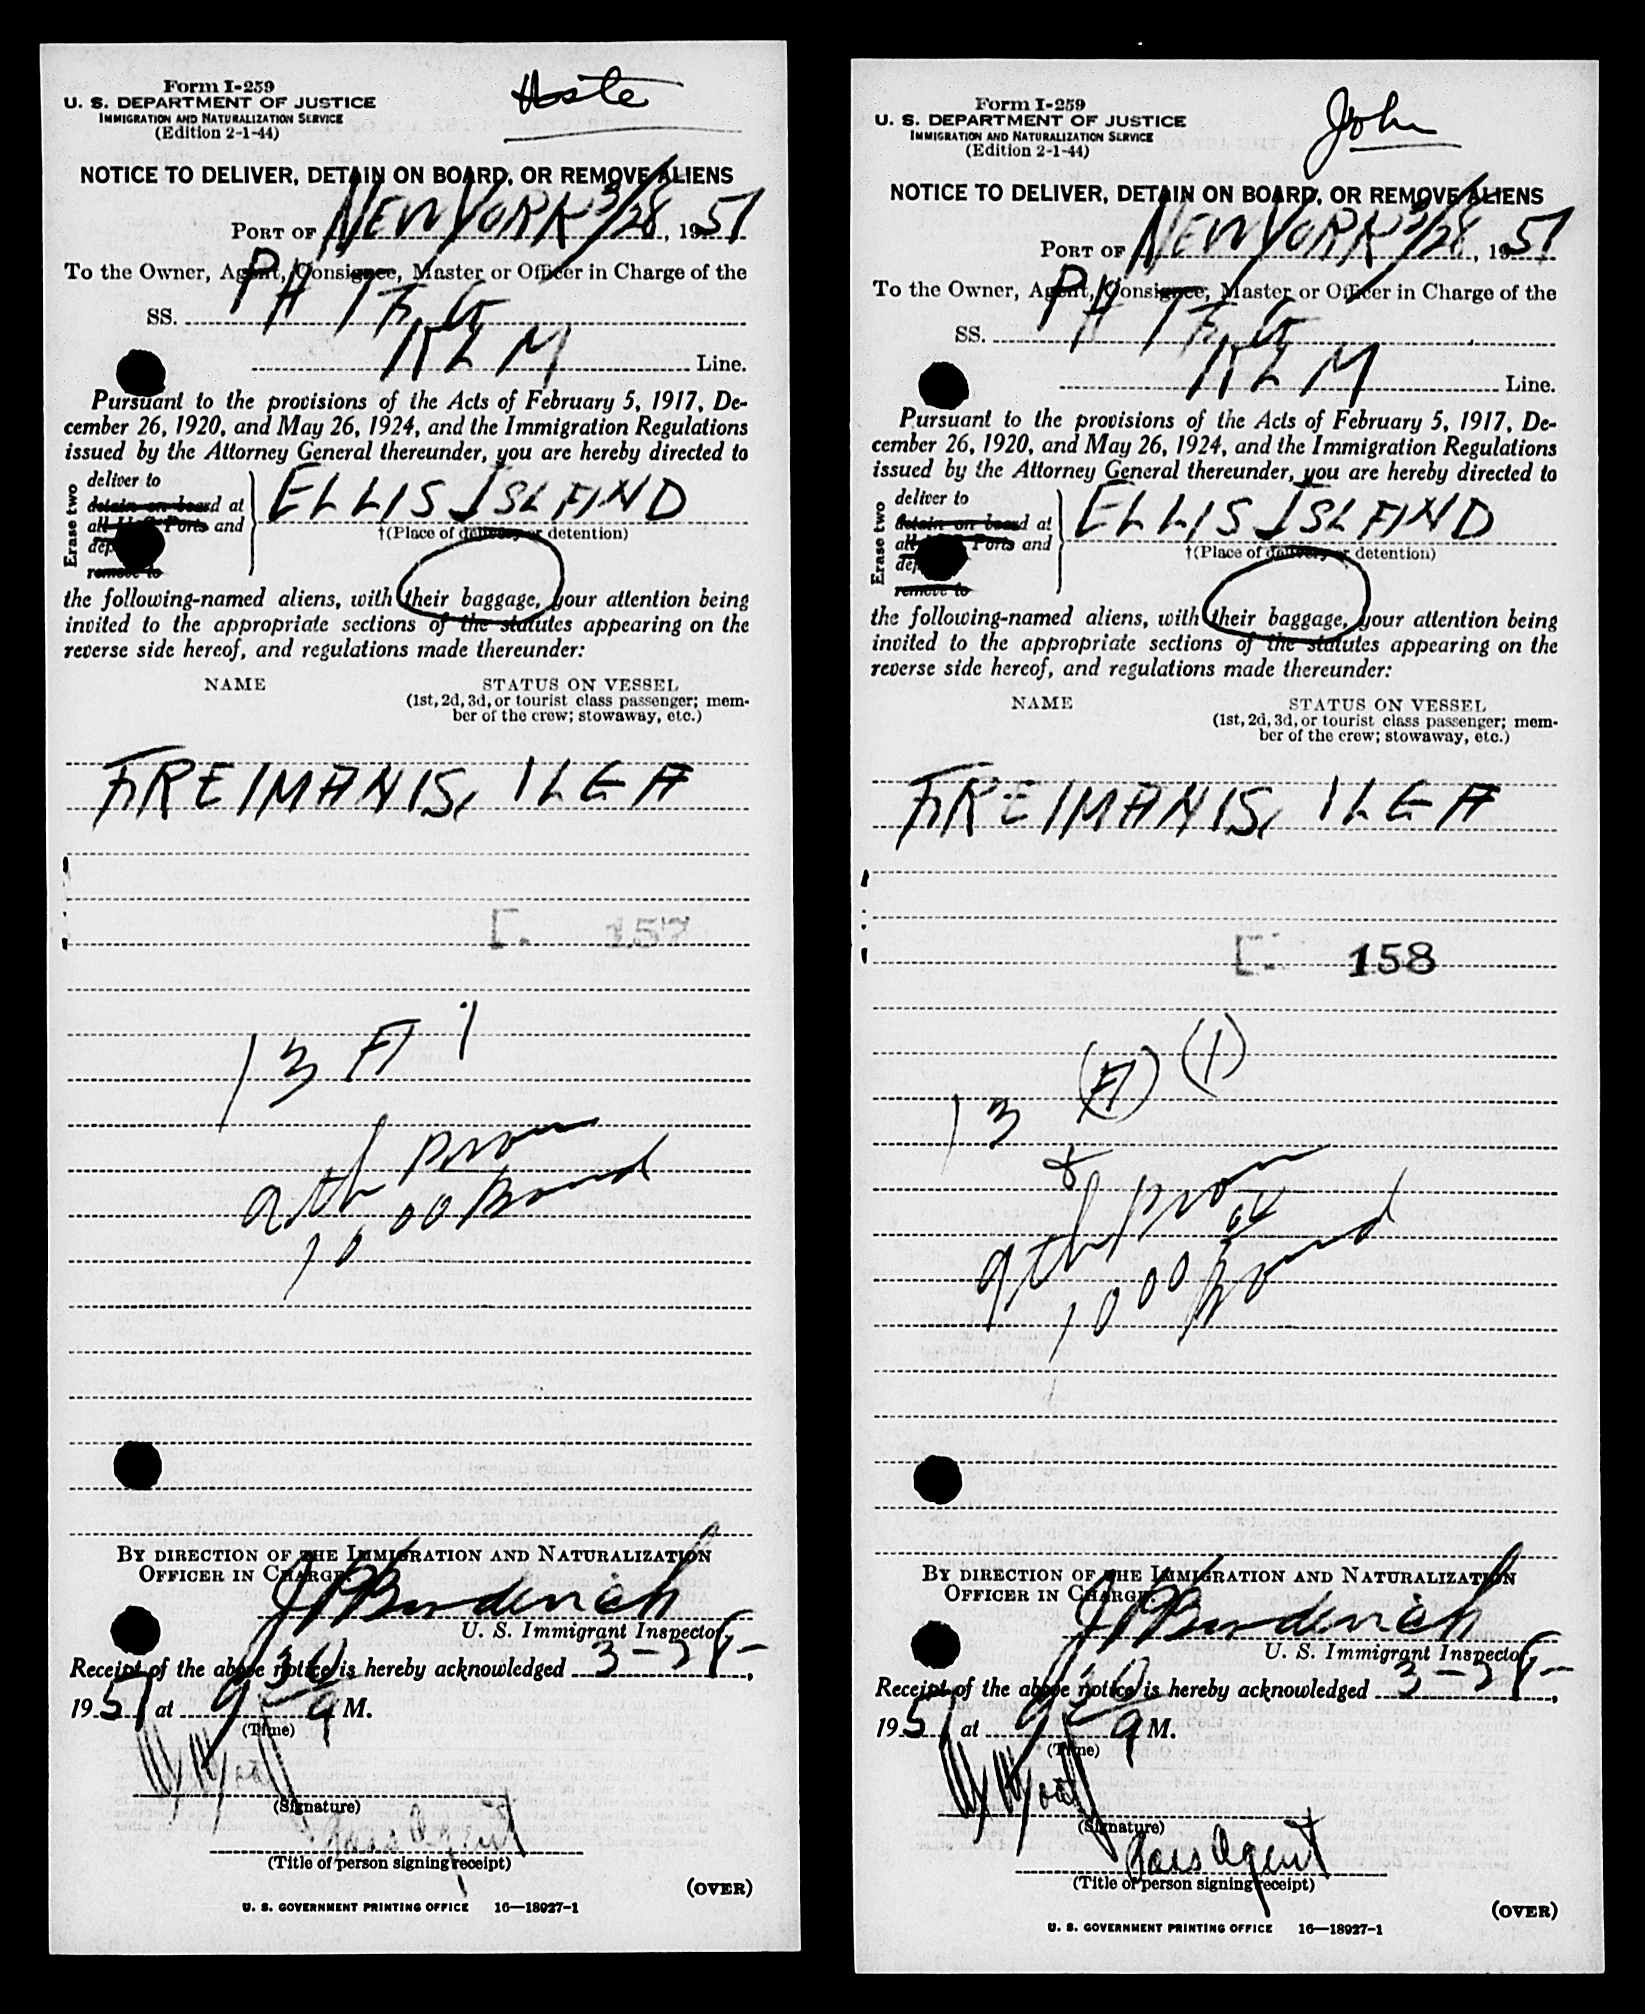 Form I-259
U. S. DEPARTMENT OF JUSTICE
IMMIGRATION AND NATURALIZATION SERVICE
(Edition 2-1-44)
NOTICE TO DELIVER, DETAIN ON BOARD, OR REMOVE ALIENS
PORT OF NEW YORK 3/28, 1951
To the Owner, Agent, Consignee, Master or Officer in Charge of the
SS. PH TFG
KLM Line.
Pursuant to the provisions of the Acts of February 5, 1917, De-
cember 26, 1920, and May 26, 1924, and the Immigration Regulations
issued by the Attorney General thereunder, you are hereby directed to
Erase two
deliver to
detain on board at
all Ports and
remove to
ELLIS ISLAND
†(Place of delivery or detention)
the following-named aliens, with their baggage, your attention being
invited to the appropriate sections of the statutes appearing on the
reverse side hereof, and regulations made thereunder:
NAME STATUS ON VESSEL
(1st, 2d, 3d, or tourist class passenger; mem-
ber of the crew; stowaway, etc.)
FREIMANIS, ILGA
157
13 F 1
9th prov
1000 Bond
BY DIRECTION OF THE IMMIGRATION AND NATURALIZATION
OFFICER IN CHARGE.
U. S. Immigrant Inspector.
Receipt of the above notice is hereby acknowledged 3-28-,
1951 at 9 30 A M.
(Time)
(Signature)
Pass Agent
(Title of person signing receipt)
(OVER)
U. S. GOVERNMENT PRINTING OFFICE 16—18927-1
John
Form I-259
U. S. DEPARTMENT OF JUSTICE
IMMIGRATION AND NATURALIZATION SERVICE
(Edition 2-1-44)
NOTICE TO DELIVER, DETAIN ON BOARD, OR REMOVE ALIENS
PORT OF NEW YORK 3/28, 1951
To the Owner, Agent, Consignee, Master or Officer in Charge of the
SS. PH TFG
KLM Line.
Pursuant to the provisions of the Acts of February 5, 1917, De-
cember 26, 1920, and May 26, 1924, and the Immigration Regulations
issued by the Attorney General thereunder, you are hereby directed to
Erase two
deliver to
detain on board at
all Ports and
remove to
ELLIS ISLAND
†(Place of delivery or detention)
the following-named aliens, with their baggage, your attention being
invited to the appropriate sections of the statutes appearing on the
reverse side hereof, and regulations made thereunder:
NAME STATUS ON VESSEL
(1st, 2d, 3d, or tourist class passenger; mem-
ber of the crew; stowaway, etc.)
FREIMANIS, ILGA
158
13 (F) (1)
9th prov
1000 bond
BY DIRECTION OF THE IMMIGRATION AND NATURALIZATION
OFFICER IN CHARGE.
U. S. Immigrant Inspector.
Receipt of the above notice is hereby acknowledged 3-28-,
1951 at 9 30 A M.
(Time)
(Signature)
Pass Agent
(Title of person signing receipt)
(OVER)
U. S. GOVERNMENT PRINTING OFFICE 16—18927-1